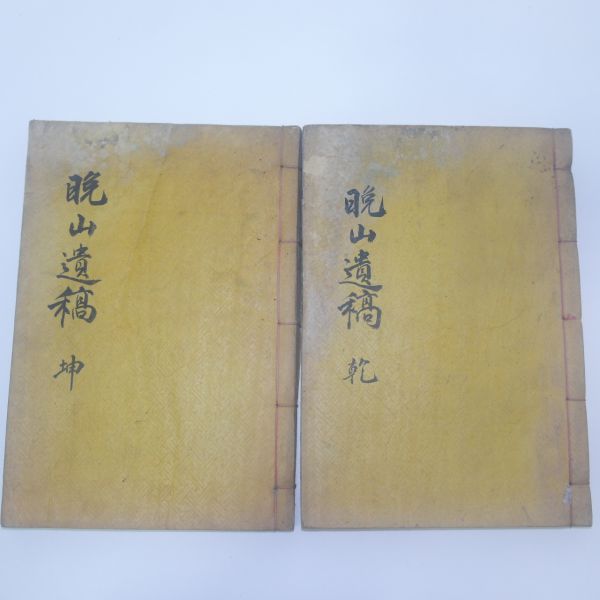 晩山遺稿 乾
晩山遺稿 坤